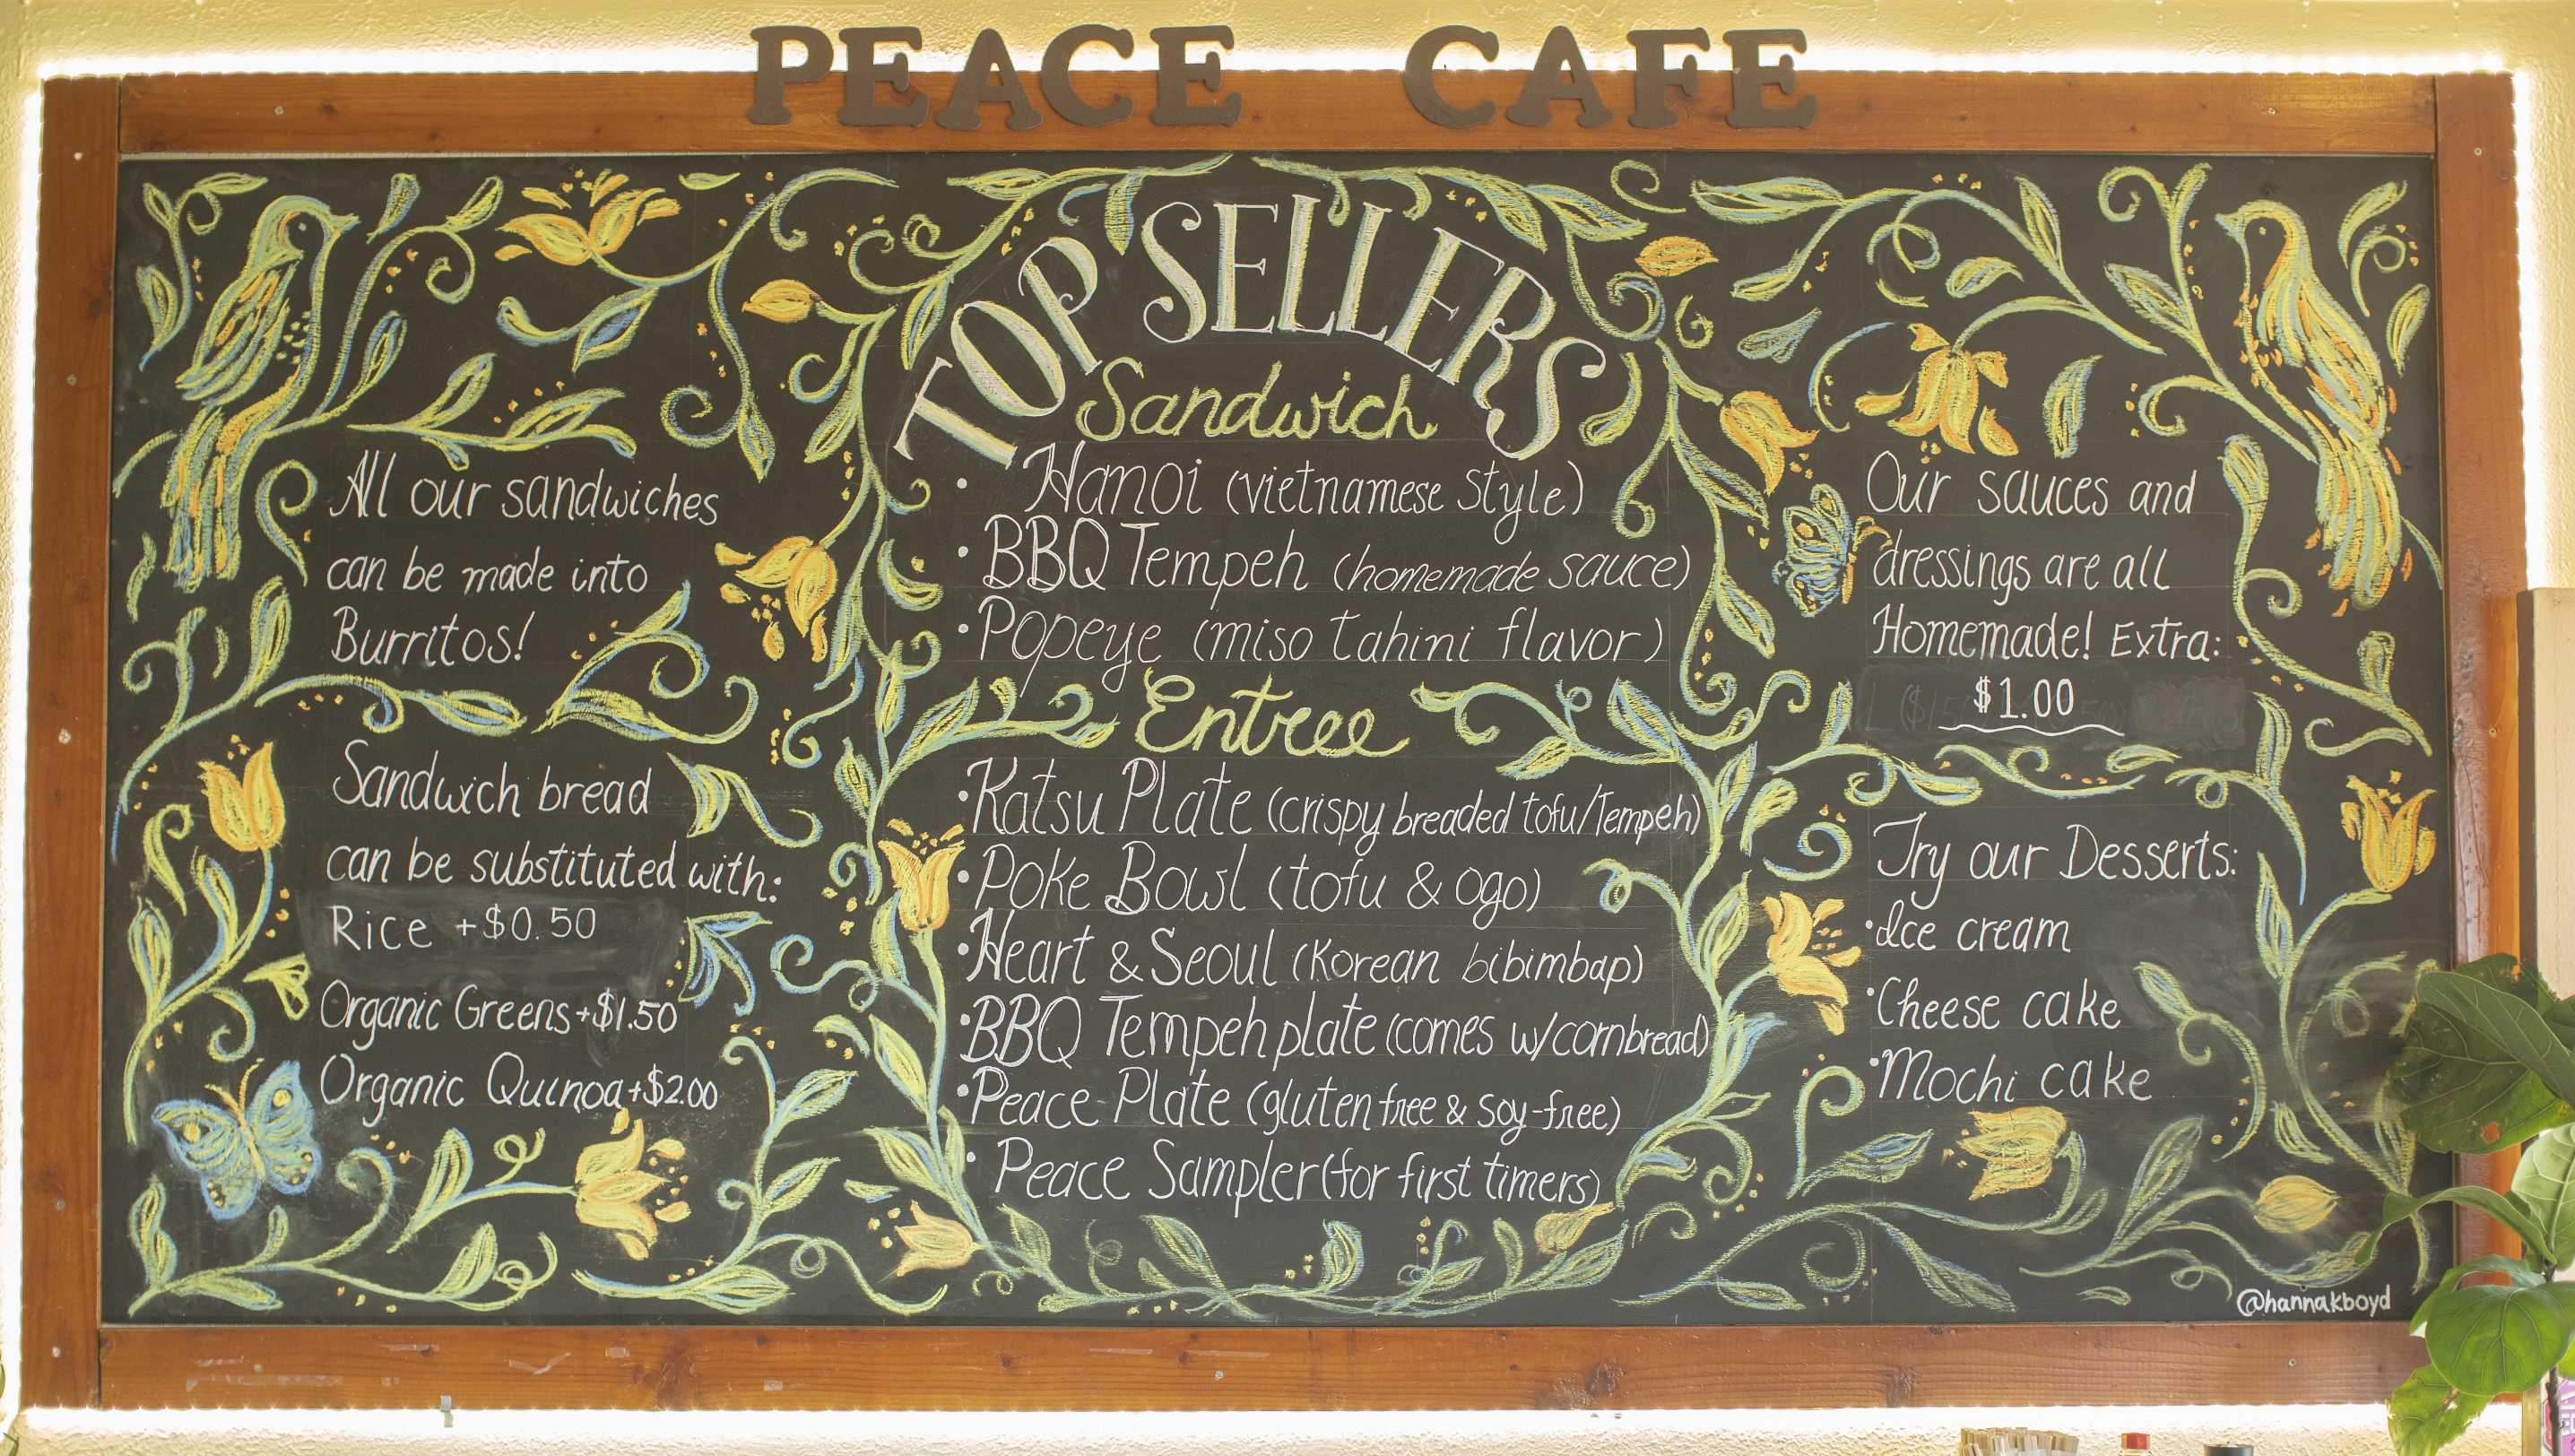 PEACE CAFE
All our sandwiches
can be made into
Burritos!
Sandwich bread
can be substituted with:
Rice +$0.50
Organic Greens +$1.50
Organic Quinoa +$2.00
TOP SELLERS
Sandwich
• Hanoi (vietnamese style)
• BBQ Tempeh (homemade sauce)
• Popeye (miso tahini flavor)
Entree
• Katsu Plate (crispy breaded tofu/Tempeh)
• Poke Bowl (tofu & ogo)
• Heart & Seoul (Korean bibimbap)
• BBQ Tempeh plate (comes w/cornbread)
• Peace Plate (gluten free & soy-free)
• Peace Sampler (for first timers)
Our sauces and
dressings are all
Homemade! Extra:
$1.00
Try our Desserts:
• Ice cream
• Cheese cake
• Mochi cake
@hannakboyd